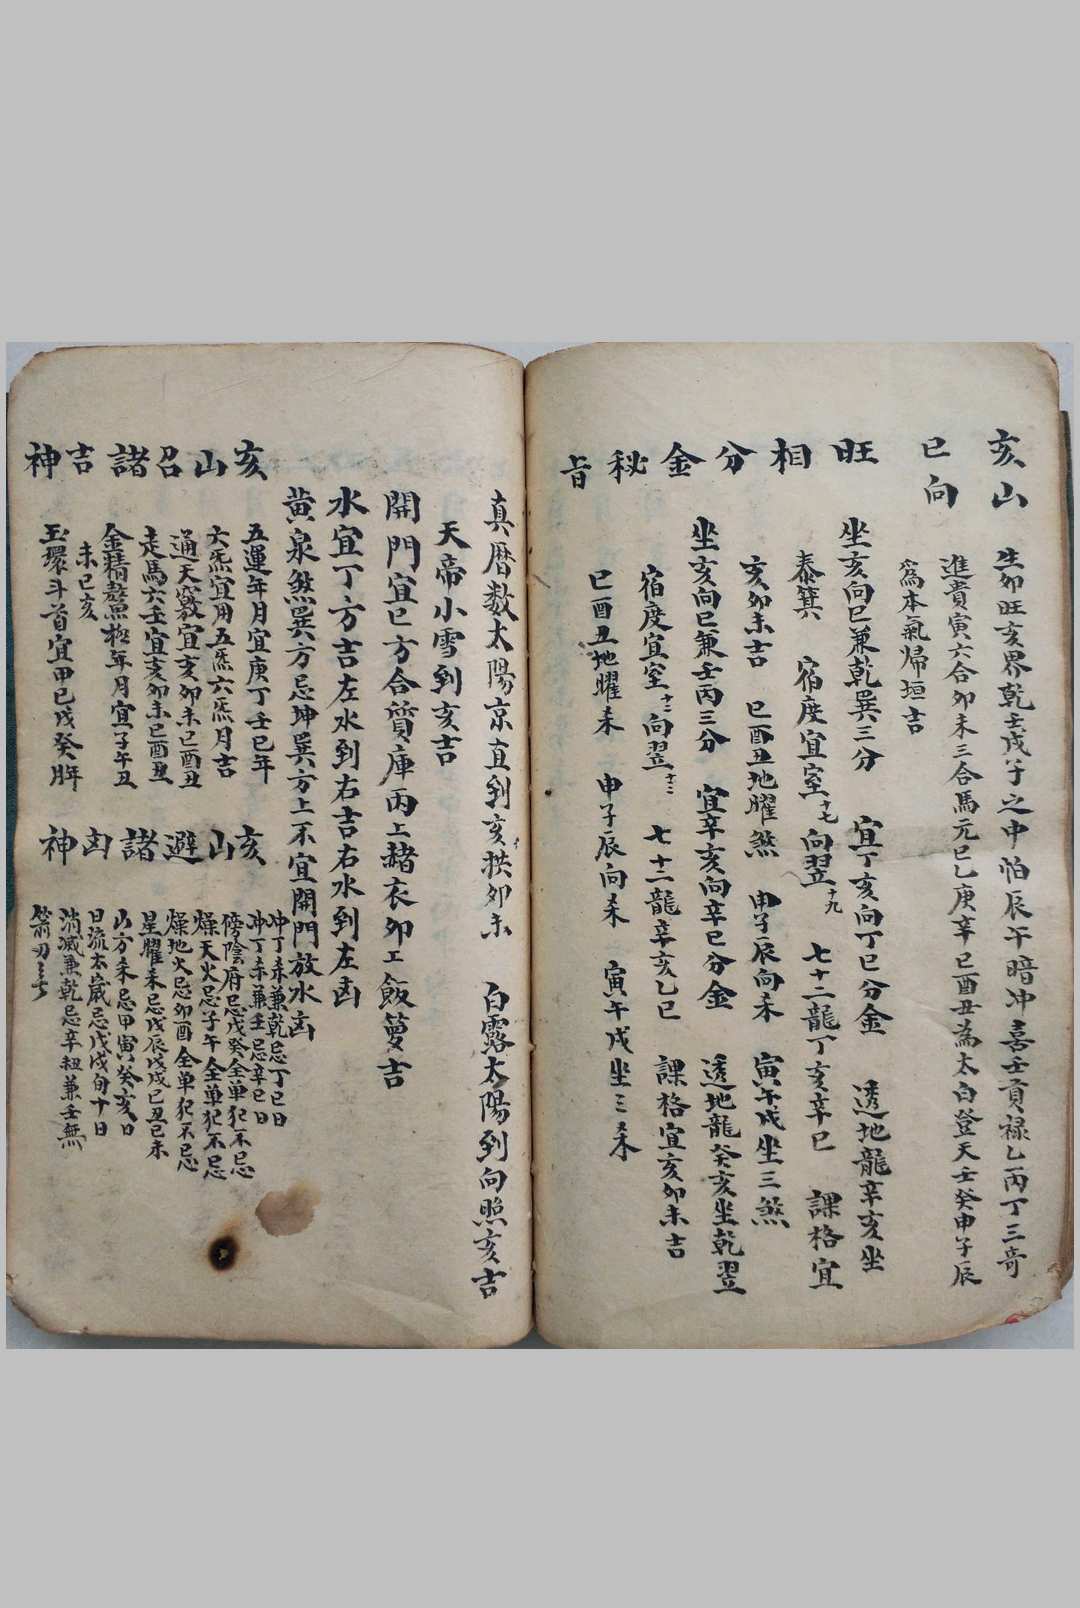 亥山
巳向
生卯旺亥界乾壬戌子之中怕辰午暗冲喜壬貢禄乙丙丁三奇
進貴寅六合卯未三合馬元巳乙庚辛巳酉丑為太白登天壬癸申子辰
為本氣帰垣吉
旺相分金秘旨
坐亥向巳兼乾巽三分 宜丁亥向丁巳分金 透地龍辛亥坐
泰箕 宿度宜室十七向翌十九 七十二龍丁亥辛巳 課格宜
亥卯未吉 巳酉丑地曜煞 申子辰向杀 寅午戌坐三煞
坐亥向巳兼壬丙三分 宜辛亥向辛巳分金 透地龍癸亥坐乾翌
宿度宜室十二向翌十三 七十二龍辛亥乙巳 課格宜亥卯未吉
巳酉丑地曜杀 申子辰向杀 寅午戌坐三杀
真曆数太陽京直到亥拱卯未 白露太陽到向照亥吉
天帝小雪到亥吉
開門宜巳方合質庫丙上赭衣卯工飯蘿吉
水宜丁方吉左水到右吉右水到左凶
黄泉煞巽方忌坤巽方上不宜開門放水凶
亥山召諸吉神
五運年月宜庚丁壬巳年
六炁宜用五炁六炁月吉
通天竅宜亥卯未巳酉丑
走馬六壬宜亥卯未巳酉丑
金精鰲極年月宜子午丑
未巳亥
玉環斗首宜甲巳戊癸年
亥山避諸凶神
冲丁杀兼乾忌丁巳日
冲丁杀兼壬忌辛巳日
傍陰府忌戊癸全单犯不忌
燥天火忌子午全单犯不忌
燥地火忌卯酉全单犯不忌
星曜杀忌戊辰戊戌巳丑巳未
山方杀忌甲寅癸亥日
日流太歳忌戊戌旬十日
消滅兼乾忌辛 兼壬無
箭刃